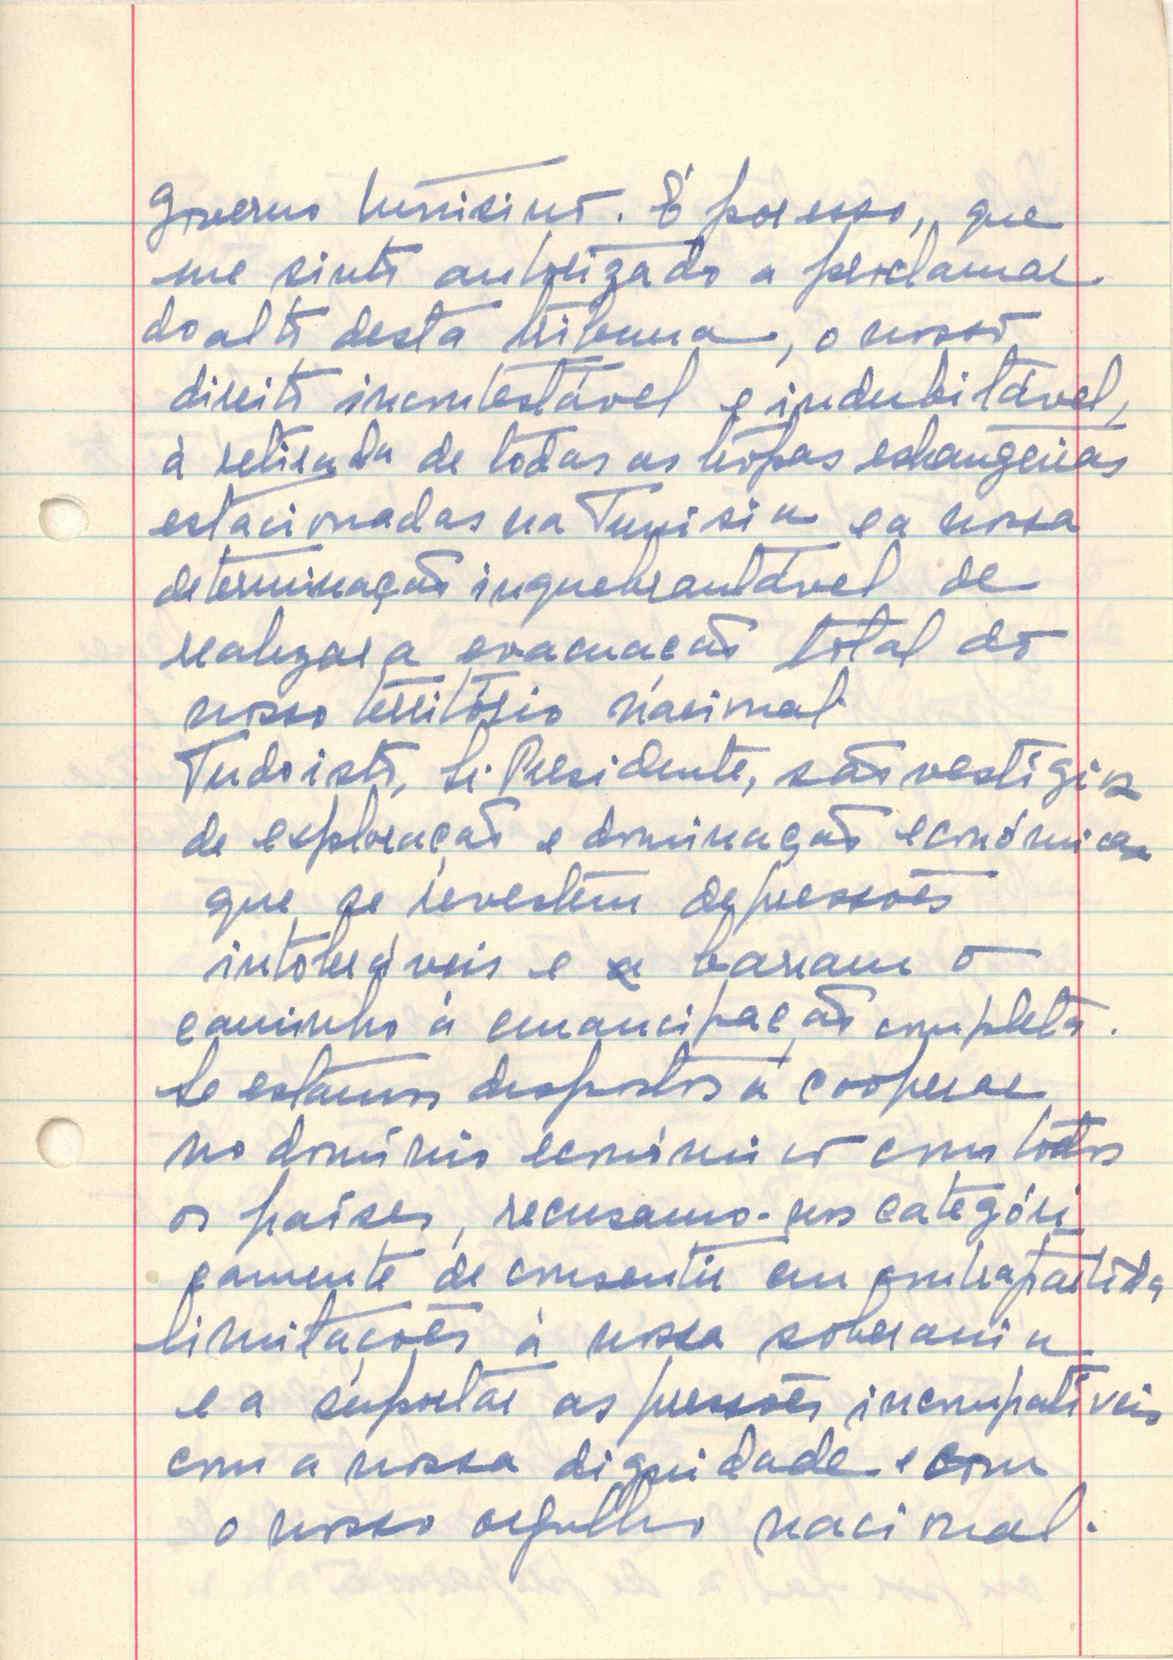 Governo tunisino. É por esso, que
me sinto autorizado a proclamar
do alto desta tribuna, o nosso
direito incontestável e indubitável,
à retirada de todas as tropas estrangeiras
estacionadas na Tunisia e a nossa
determinação inquebrantável de
realizar a evacuação total do
nosso território nacional
Tudo isto, Sr. Presidente, são vestígios
de exploração e dominação económica
que se revestem de pressões
intoleráveis e barram o
caminho à emancipação completa.
Se estamos dispostos à cooperar
no domínio económico com todos
os países, recusamo-nos categóri
camente de consentir em contrapartida
limitações à nossa soberania
e a suportar as pressões incompatíveis
com a nossa dignidade e com
o nosso orgulho nacional.